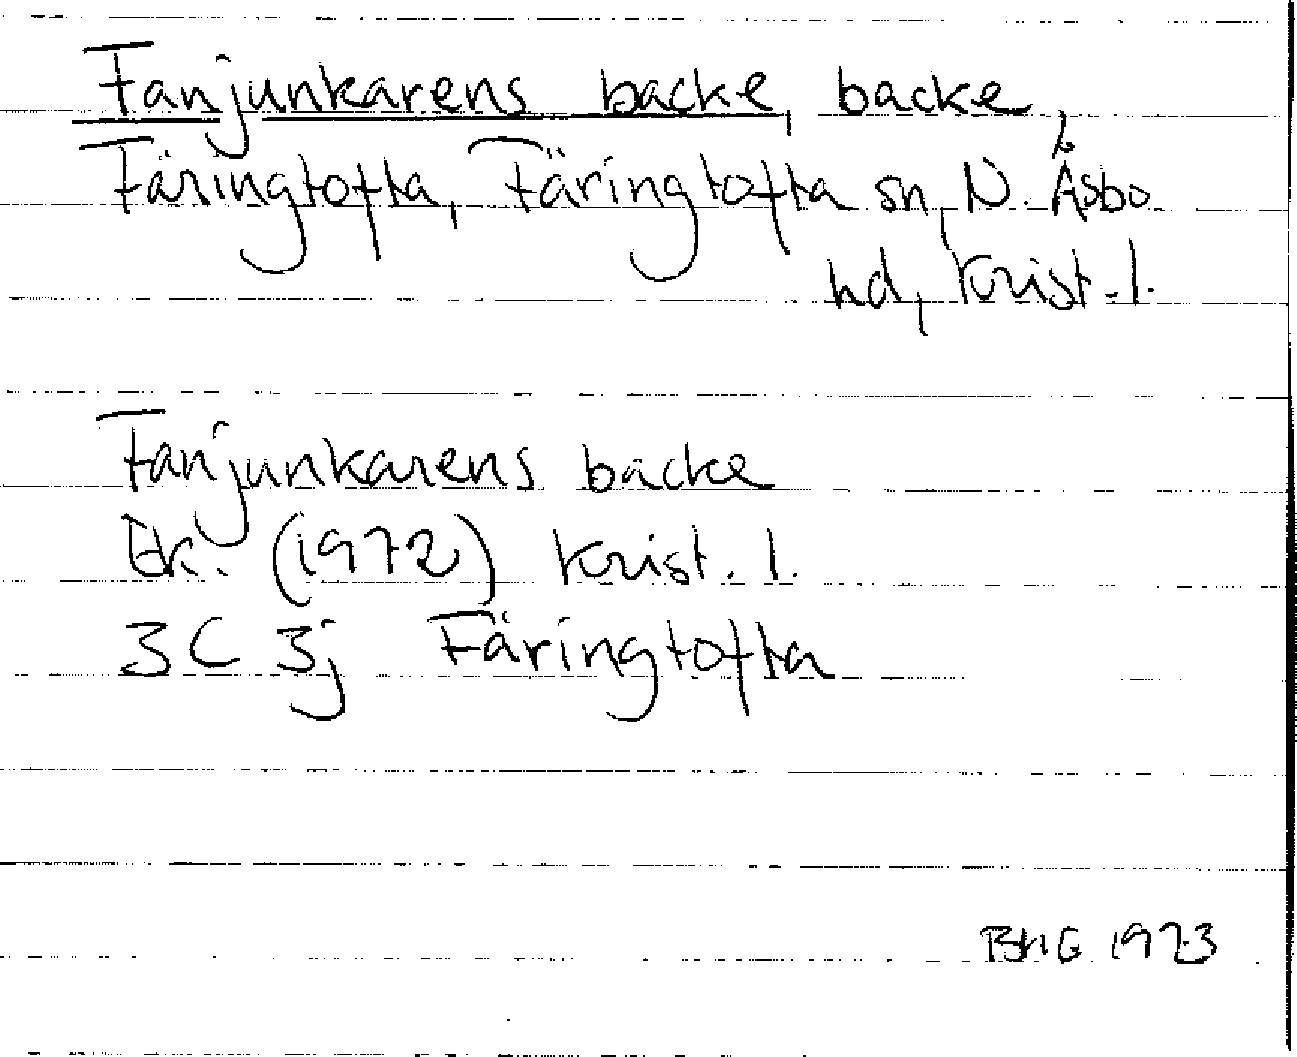 Fanjunkarens backe, backe,
Färingtofta, Färingtofta sn, N. Åsbo
hd, Krist. l.
Fanjunkarens backe
Ek. (1972) Krist. l.
3C 3j Färingtofta
BHG 1973